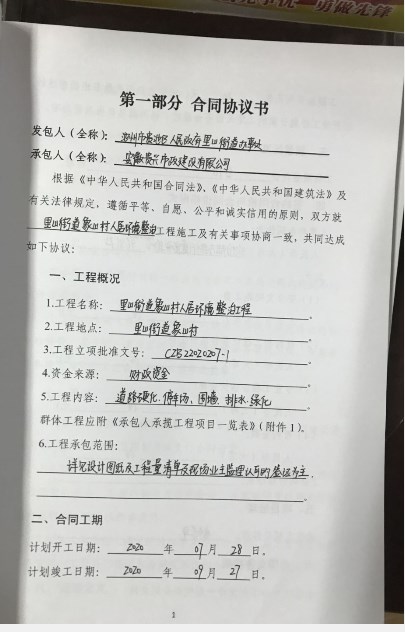 勇做先锋
第一部分 合同协议书
发包人（全称）：池州市贵池区人民政府里山街道办事处
承包人（全称）：安徽贵兴市政建设有限公司
根据《中华人民共和国合同法》、《中华人民共和国建筑法》及
有关法律规定，遵循平等、自愿、公平和诚实信用的原则，双方就
里山街道象山村人居环境整治工程施工及有关事项协商一致，共同达成
如下协议：
一、工程概况
1.工程名称：里山街道象山村人居环境整治工程。
2.工程地点：里山街道象山村。
3.工程立项批准文号：CZBZ2020207-1。
4.资金来源：财政资金。
5.工程内容：道路硬化、停车场、围墙、排水、绿化。
群体工程应附《承包人承揽工程项目一览表》（附件 1）。
6.工程承包范围：
详见设计图纸及工程量清单及现场业主监理认可的签证为主。
二、合同工期
计划开工日期：2020 年 07 月 28 日。
计划竣工日期：2020 年 09 月 27 日。
1